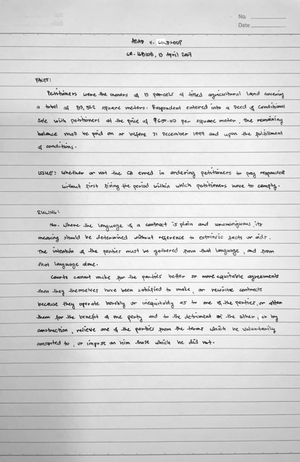 No.
Date
ABAD v. GOLDLOOP
GR. 168108, 13 April 2007
FACTS:
Petitioners were the owners of 13 parcels of titled agricultural land covering
a total of square meters. Respondent entered into a Deed of Conditional
Sale with petitioners at the price of ₱650.00 per square meter. The remaining
balance must be paid on or before 31 December 1997 and upon the fulfillment
of conditions.
ISSUE: Whether or not the CA erred in ordering petitioners to pay respondent
without first fixing the period within which petitioners have to comply.
RULING:
No. Where the language of a contract is plain and unambiguous, its
meaning should be determined without reference to extrinsic facts or aids.
The intention of the parties must be gathered from that language, and from
that language alone.
Courts cannot make for the parties better or more equitable agreements
than they themselves have been satisfied to make, or rewrite contracts
because they operate harshly or inequitably as to one of the parties, or alter
them for the benefit of one party and to the detriment of the other, or by
construction, relieve one of the parties from the terms which he voluntarily
consented to, or impose on him those which he did not.